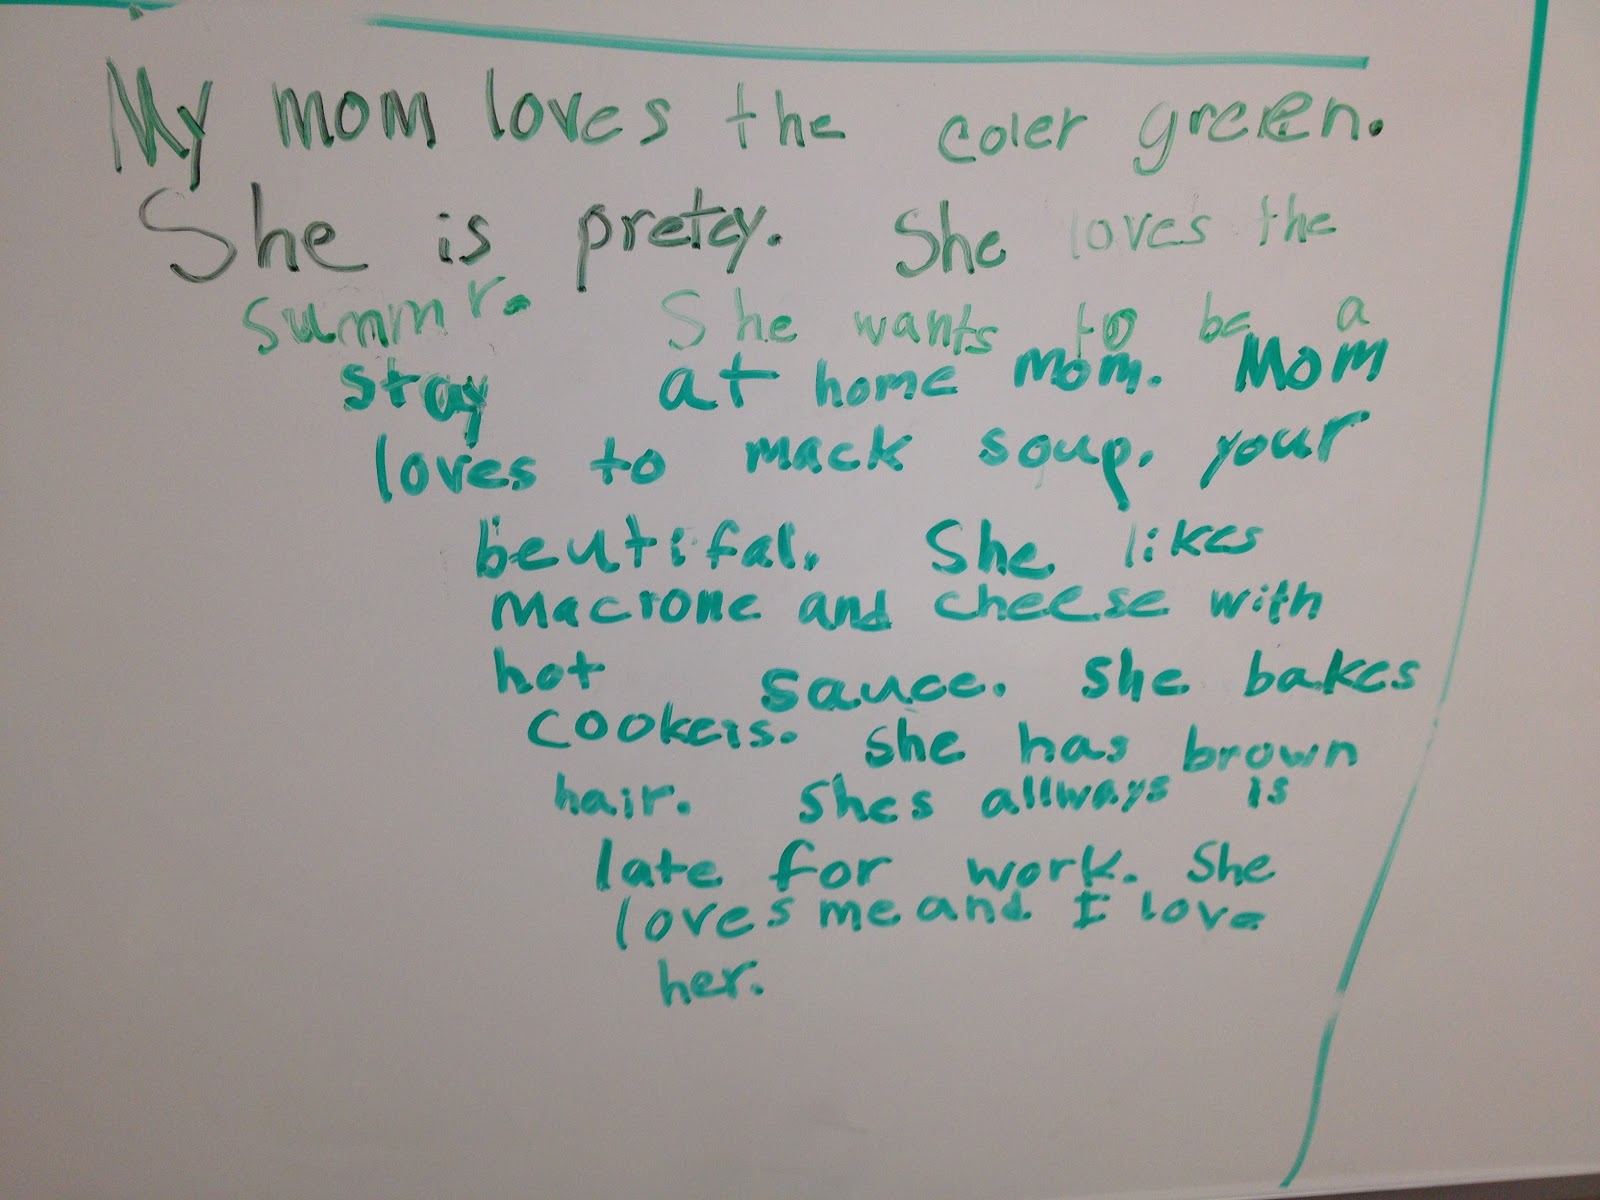 My mom loves the coler green.
She is pretey. She loves the
summr. She wants to be a
stay at home mom. Mom
loves to mack soup. your
beutifal. She likes
macrone and cheese with
hot sauce. She bakes
cookeis. She has brown
hair. Shes allways is
late for work. She
loves me and I love
her.